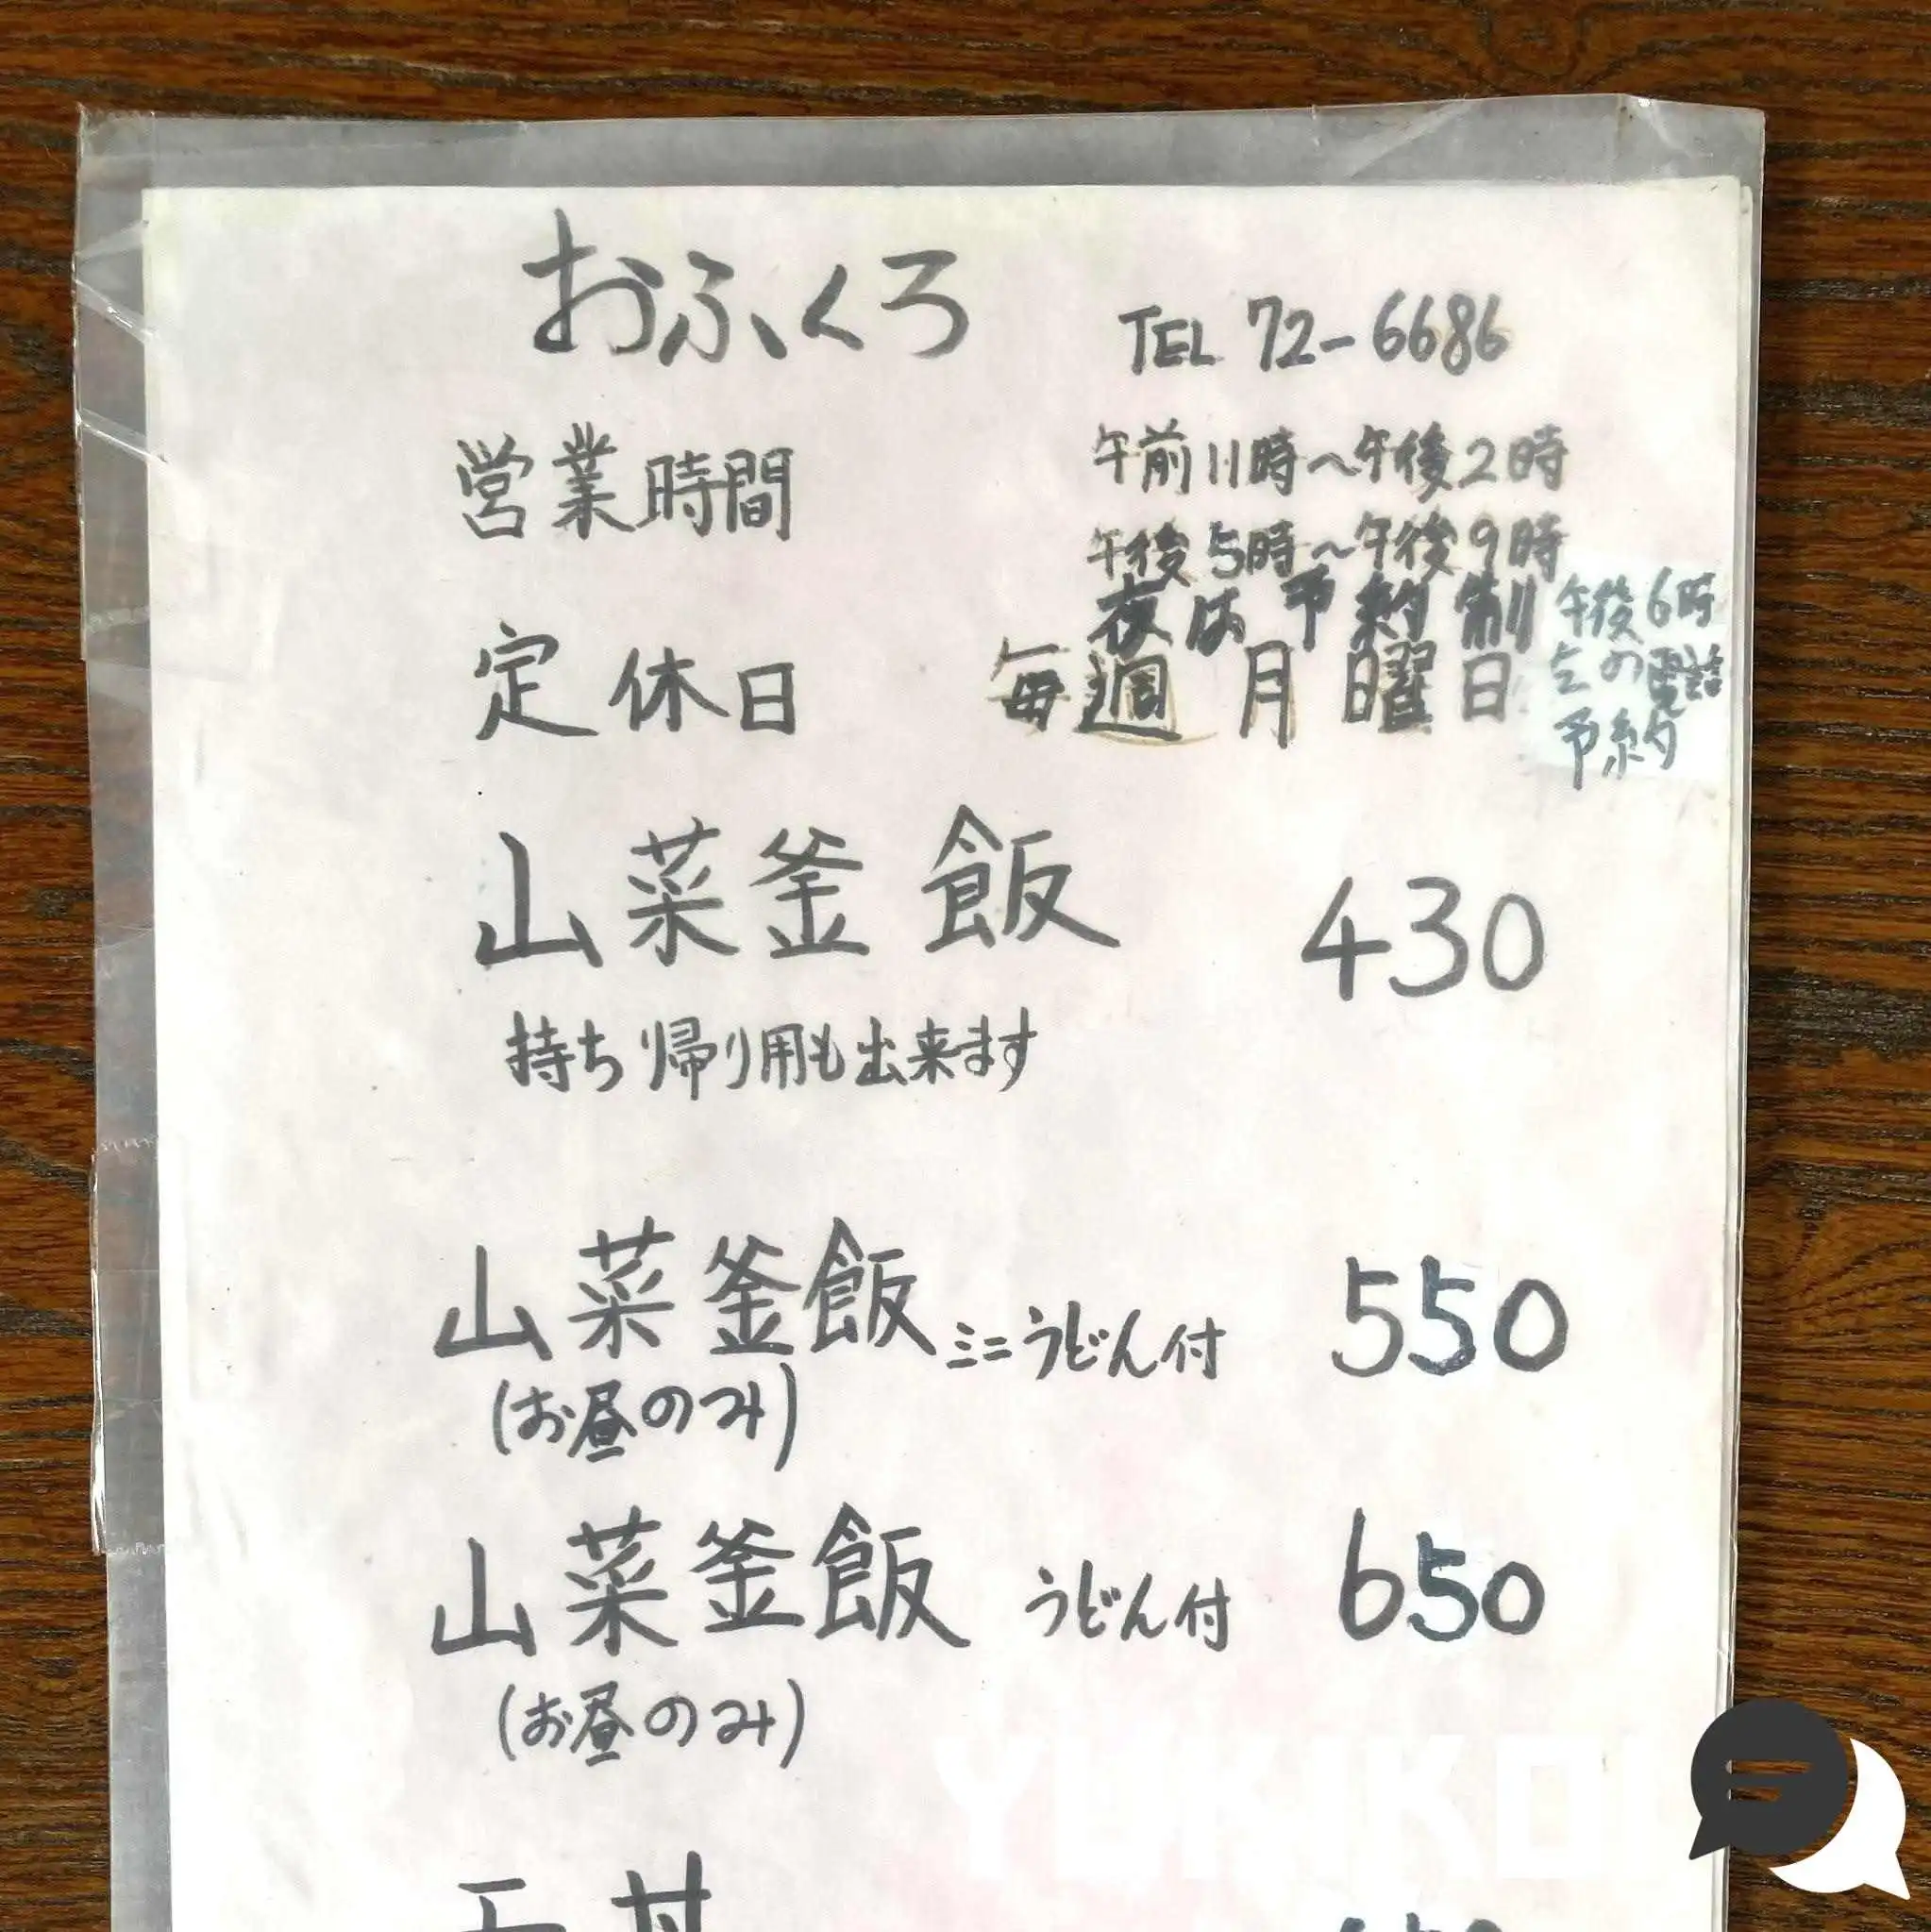 おふくろ
TEL 72-6686
営業時間
午前11時～午後2時
午後5時～午後9時
夜は予約制
定休日
毎週月曜日
午後6時
の電話
予約
山菜釜飯 430
持ち帰り用も出来ます
山菜釜飯 ミニうどん付 550
(お昼のみ)
山菜釜飯 うどん付 650
(お昼のみ)
丼
YUKIKO